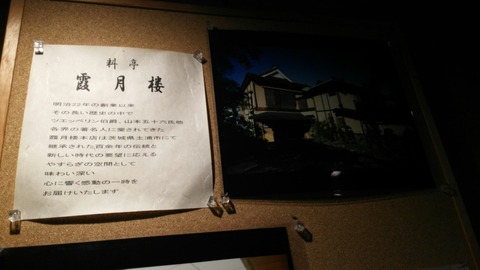 料亭
霞月楼
明治22年の創業以来
その長い歴史の中で
ツェッペリン伯爵、山本五十六氏他
各界の著名人に愛されてきた
霞月楼本店は茨城県土浦市にて
継承された百余年の伝統と
新しい時代の要望に応える
やすらぎの空間として
味わい深い
心に響く感動の一時を
お届けいたします